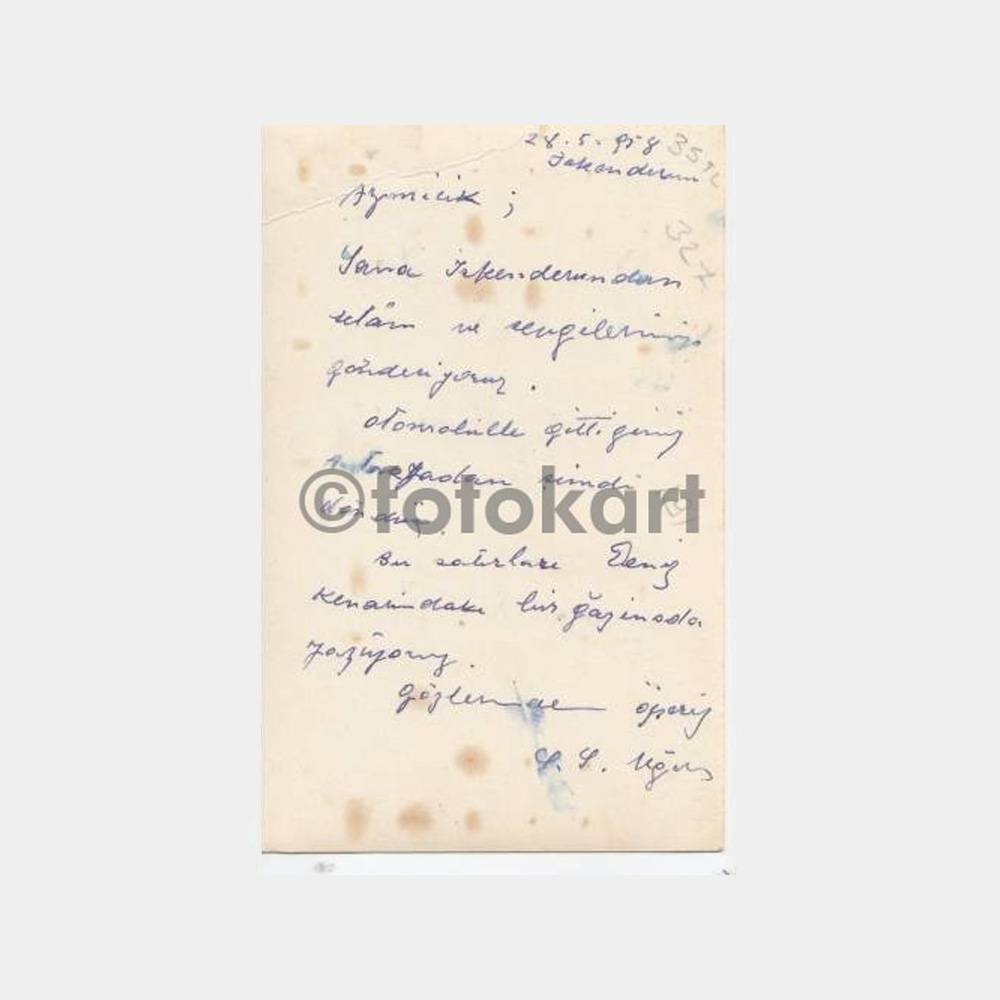 28.5.958
İskenderun
Azmicik ;
Sana İskenderundan
selâm ve sevgilerimizi
gönderiyoruz .
otomobille gittiğimiz
şimdi
döndük.
Bu satırları Deniz
kenarındaki bir ğazinoda
yazıyoruz.
Gözlerinden öperiz
S. S.
327
©fotokart